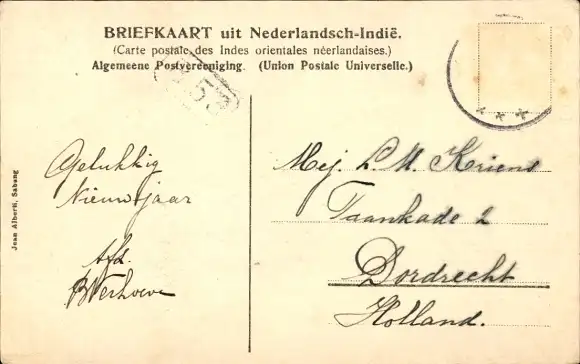 BRIEFKAART uit Nederlandsch-Indië.
(Carte postale des Indes orientales néerlandaises.)
Algemeene Postvereeniging. (Union Postale Universelle.)
53
Jean Alberti, Sabang
Gelukkig
Nieuwjaar
Afd.
Verhoeve
Mej. L. M. Kriens
Taankade 2
Dordrecht
Holland.